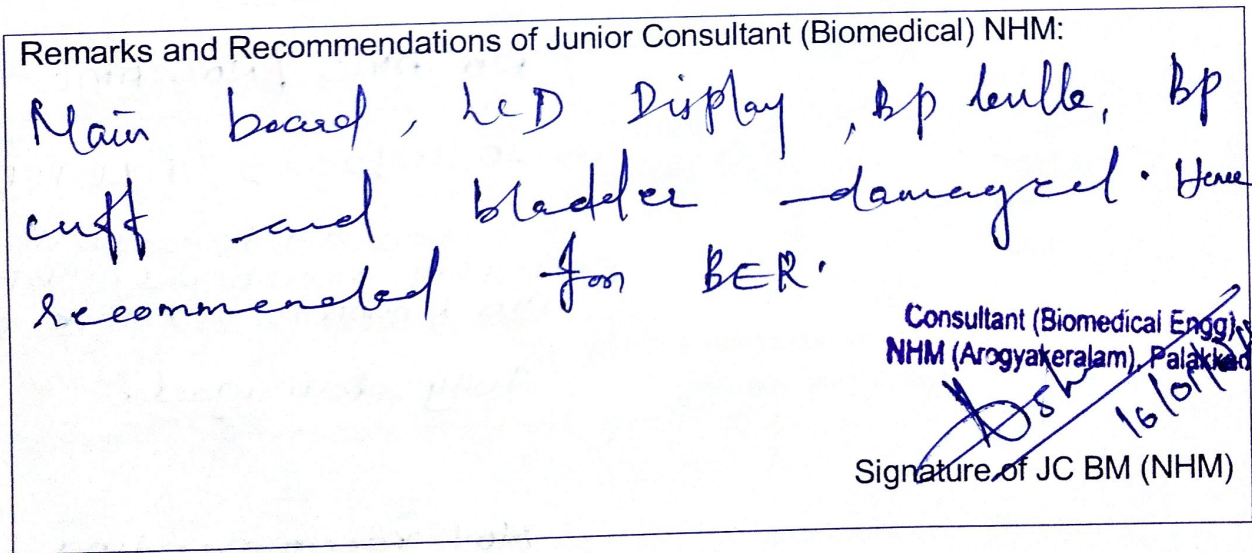 Remarks and Recommendations of Junior Consultant (Biomedical) NHM:
Main board, LCD Display, Bp bulb, Bp
cuff and bladder damaged. Hence
recommended for BER.
Consultant (Biomedical Engg),
NHM (Arogyakeralam), Palakkad
Signature of JC BM (NHM)